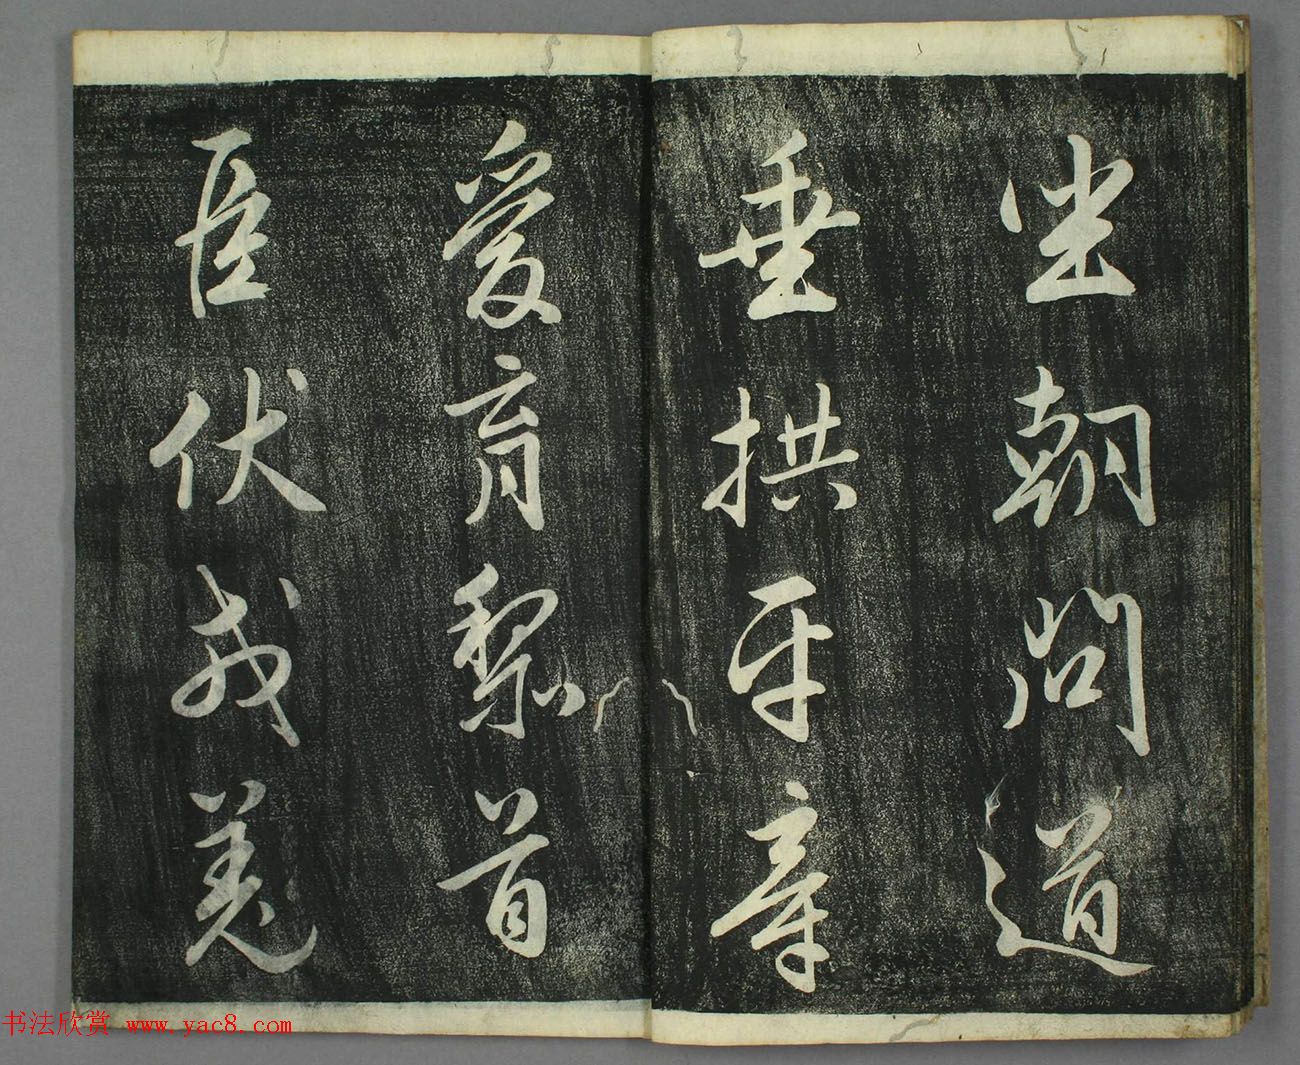 坐朝問道
垂拱平章
愛育黎首
臣伏戎羌
书法欣赏 www.yac8.com